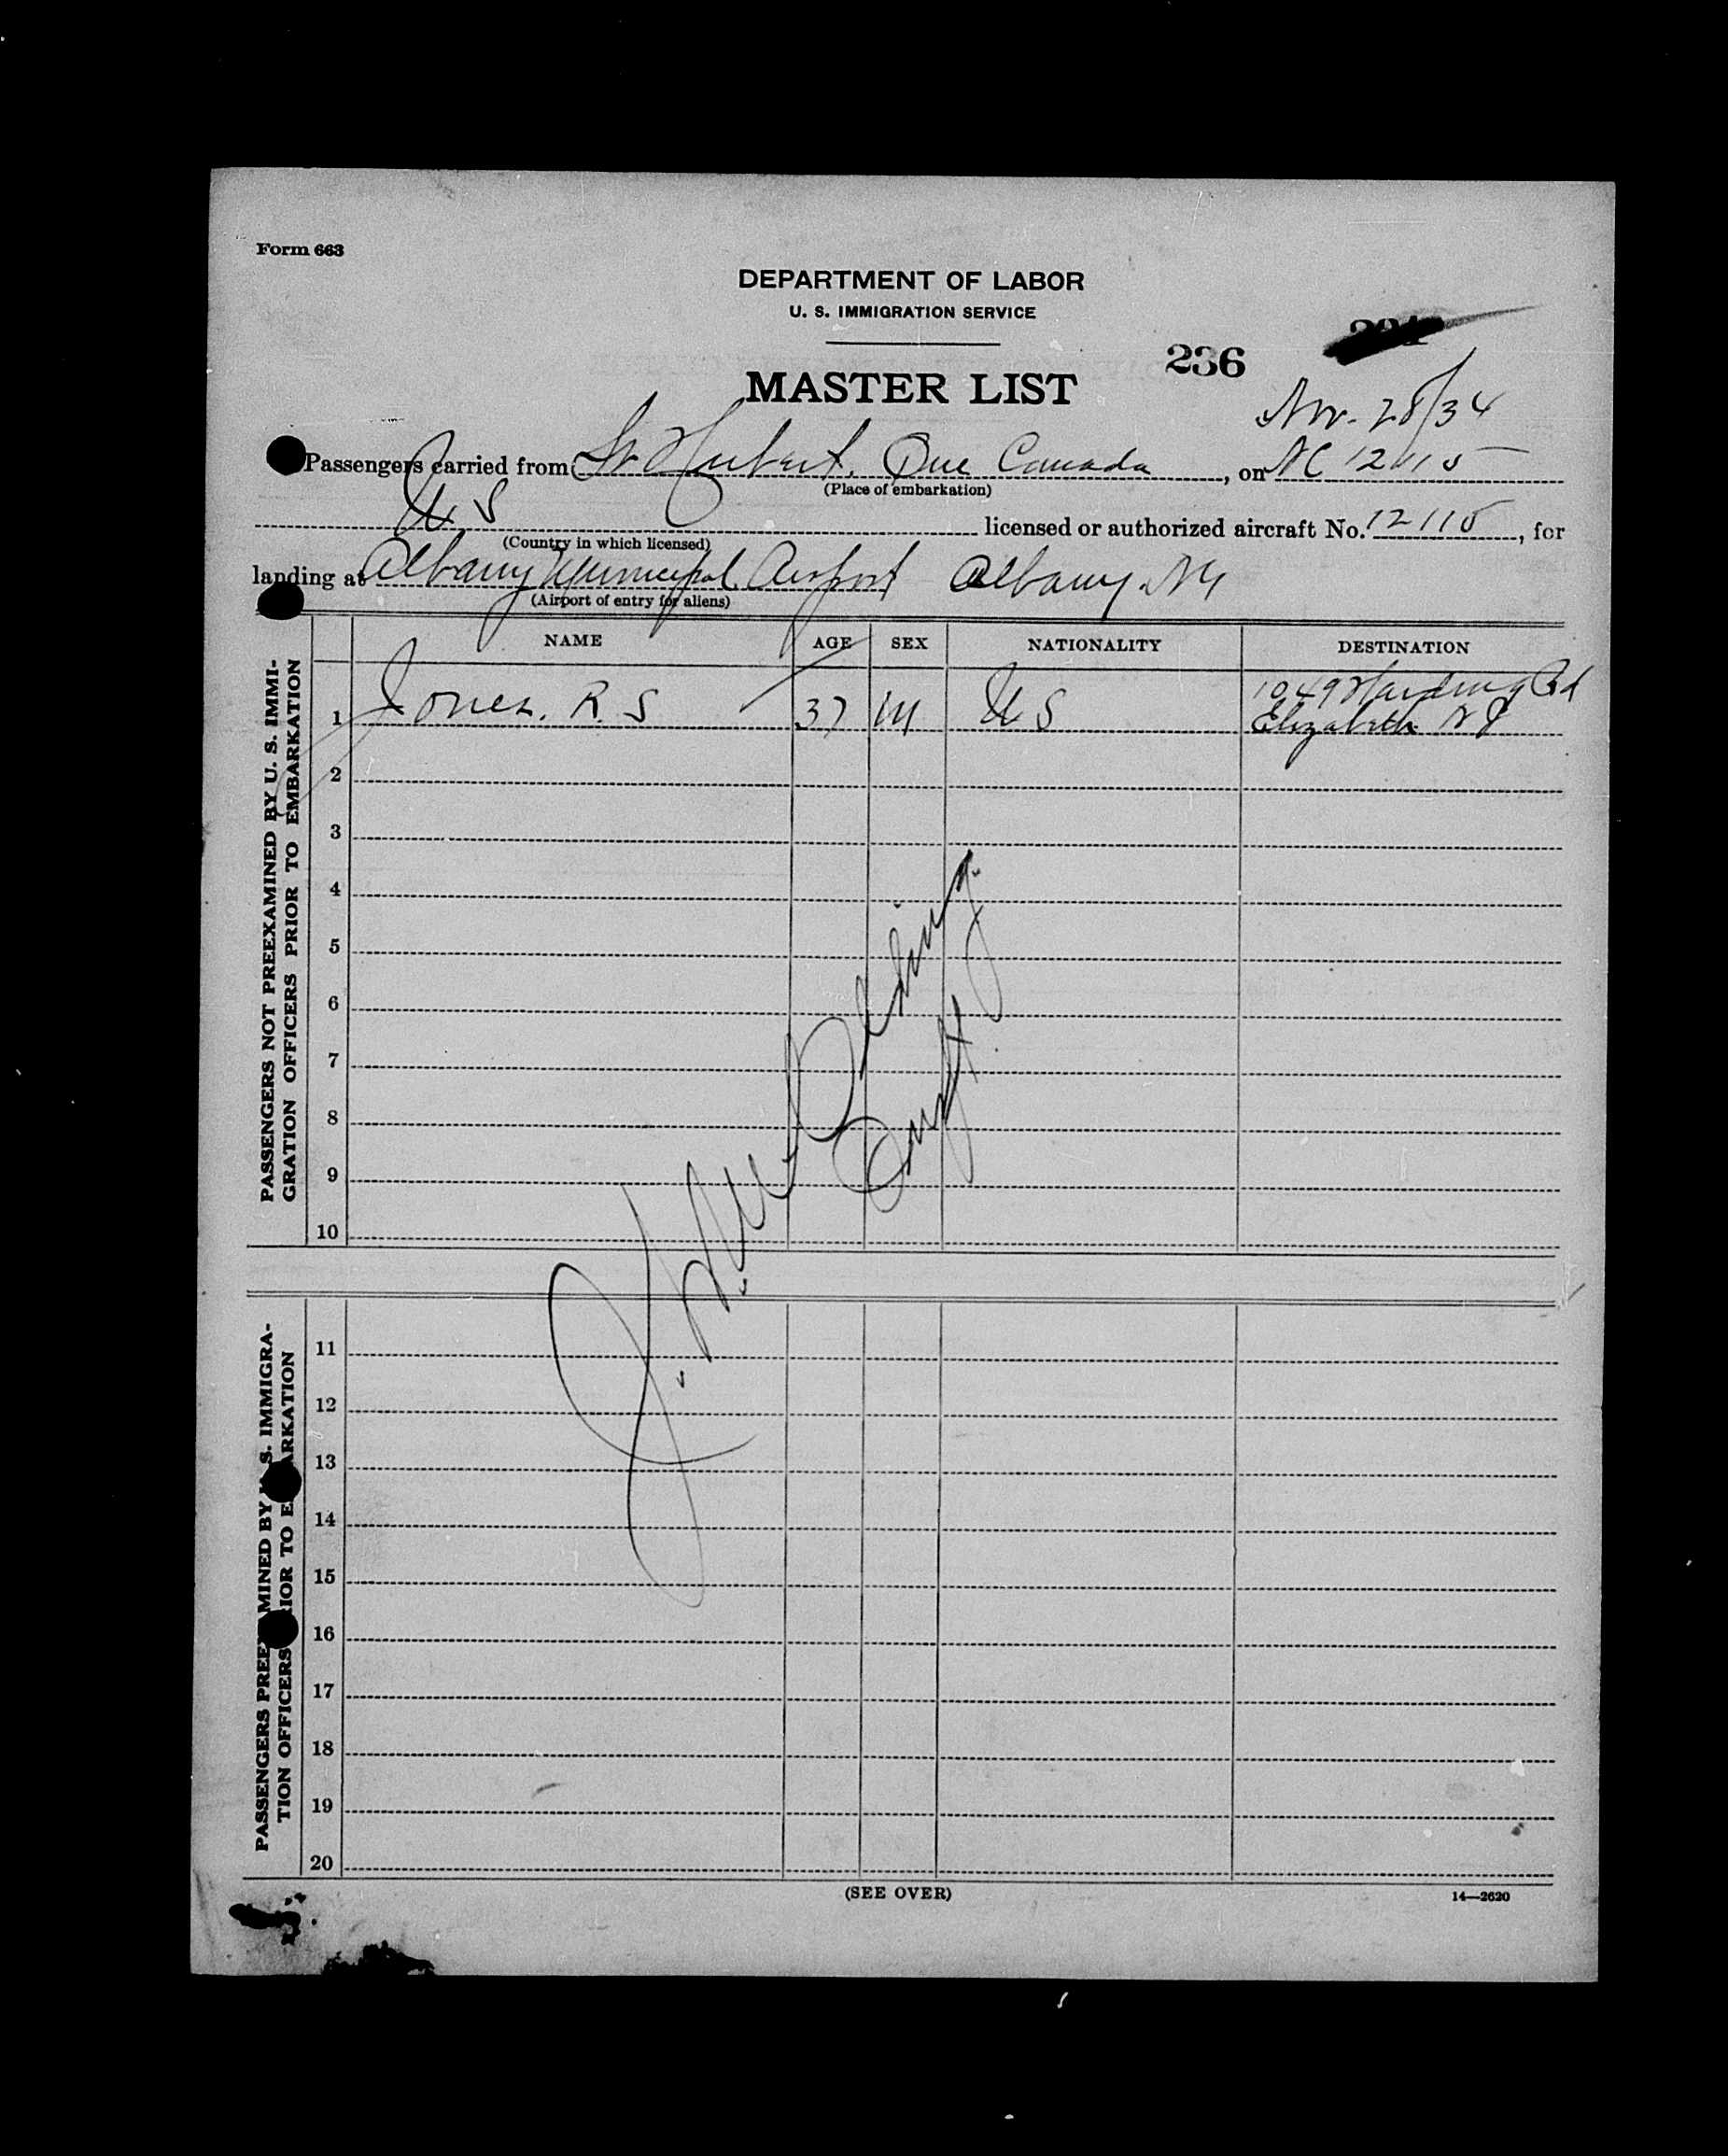 Form 663
DEPARTMENT OF LABOR
U. S. IMMIGRATION SERVICE
236
MASTER LIST
Nov. 28/34
Passengers carried from St Hubert, Que Canada, on NC 12115
(Place of embarkation)
U S licensed or authorized aircraft No. 12115, for
(Country in which licensed)
landing at Albany Municipal Airport Albany. NY
(Airport of entry for aliens)
NAME AGE SEX NATIONALITY DESTINATION
PASSENGERS NOT PREEXAMINED BY U. S. IMMI-
GRATION OFFICERS PRIOR TO EMBARKATION
1 Jones. R. S 37 M U S 1049 Harding Rd
Elizabeth N J
2
3
4
5
6
7
8
9
10
PASSENGERS PREEXAMINED BY U. S. IMMIGRA-
TION OFFICERS PRIOR TO EMBARKATION
11
12
13
14
15
16
17
18
19
20
(SEE OVER)
14—2620